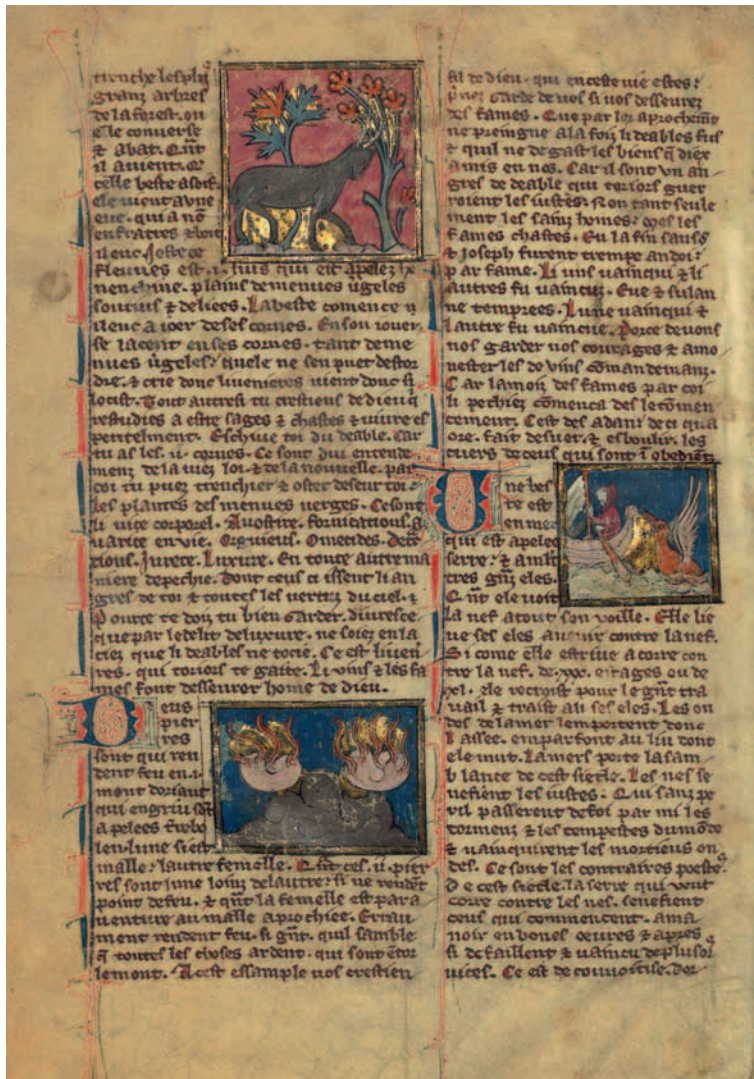 trenche les plus
granz arbres
de la forest. ou
ele converse
& abat. Qn̄t
il avient. Q̄
celle beste a soif.
ele vient a une
eue. qui a nō
eufrates & boit
ileuc. Joste ce
fleuves est. i. huis qui est apelez
nenchine. plains de menues v̄geles
soutius & deliees. La beste comence
ileuc a ioer de ses cornes. En son iouer
se lacent en ses cornes. tant de me
nues v̄geles. quele ne sen puet destor
dre. & crie donc li venieres vient donc si
locist. Tout autresi tu crestiens de dieu q
restudies a estre sages & chastes & vivre es
peritelment. Eschive toi du deable. Car
tu as les. ii. cornes. Ce sont dui entende
menz de la viez loi. & de la nouvelle. par
coi tu puez trenchier & oster deseur toi.
les plantes des menues verges. Ce sont
li vice corporel. Avostire. fornications. a
varice envie. Orguieus. Omecides.
cions. Ivrece. Luxure. En toute autre ma
niere de pechie. dont ceus ci issent li an
gres de toi & toutes les vertuz du ciel. &
Pource te doiz tu bien garder. divresce
que par le delit de luxure. ne soiez en la
ciez que li deables ne tocie. Ce est li veni
res. qui toriors te gaite. Li vins & les fa
mes font dessevrer home de dieu.
Deus
pier
res
sont qui ren
dent feu en .i.
mont doriant
qui en griu sōt
apelees
len. lune si est
malle. lautre femelle. Qn̄t ces. ii. pier
res sont lune loinz de lautre. si ne rendēt
point de feu. & qn̄t la femelle est par a
venture au malle aprochiee. Errau
ment rendent feu. si gn̄t. quil samble
q̄ toutes les choses ardent. qui sont ētor
le mont. A cest essample vos crestien
fal de dieu. qui en ceste vie estes.
p̄nez garde de vos si vos dessevrez
des fames. Que par lor aprochemēt
ne preingne a la foiz li deables fus
& quil ne degast les biens q̄ diex
a mis en nos. Car il sont un an
gres de deable qui toriors guer
roient les iustes. Non tant seule
ment les sainz homes. mes les
fames chastes. En la fin
& ioseph furent trempe andoi.
par fame. Li uns vainqui & li
autres fu vaincu. Eve & susan
ne temprees. Lune vainqui &
lautre fu vaincue. Porce devons
nos garder nos courages & amo
nester les de vins cōmandemanz.
Car lamor des fames par coi
li pechiez cōmenca des le cōmen
cement. Cest des adam de ci qua
ore. fait desver. & esboulir. les
cuers de ceus qui sont ī obediēt.
Une bes
te est
en mer
qui est apelee
serre. & a mlt
tres gn̄z eles.
Qn̄t ele voit
la nef atout son voille. Elle lie
ve ses eles a venir contre la nef.
Si come elle estrive a corre con
tre la nef. de .xxx. estages ou de
.xl. ele recroist pour le gn̄t tra
vail & traist a li ses eles. Les on
des de la mer lemportent donc
lassee. en parfont au liu dont
ele mut. La mers porte la sam
blance de cest siecle. Les nes se
nefient les iustes. Qui sanz pe
ril passerent de foi par mi les
tormenz & les tempestes du mōde
& vainquirent les mortieus on
des. Ce sont les contraires poestes
de cest siecle. la serre qui vout
corre contre les nes. senefient
ceus qui commencent. a ma
noir en bones oevres & apres
si defaillent & vaincu de plusors
vices. Ce est de couvoitise. dor